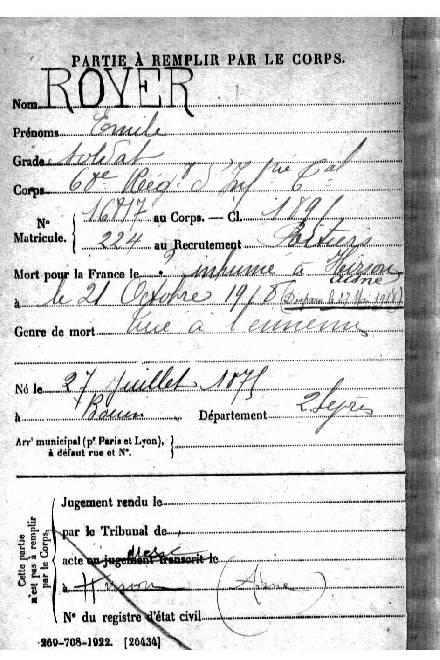 PARTIE À REMPLIR PAR LE CORPS.
Nom ROYER
Prénoms Emile
Grade soldat
Corps 60e Rég.t d'Inf.rie Cal
N° Matricule. { 16817 au Corps. — Cl. 1895
224 au Recrutement Poitiers
Mort pour la France le ? inhumé à Hirson Aisne
à le 21 Octobre 1918 (Disparu le 27 Mai 1918)
Genre de mort à l'ennemi
Né le 27 Juillet 1875
à Département 2 Sèvres
Arr' municipal (p' Paris et Lyon), à défaut rue et N°. }
Cette partie n'est pas à remplir par le Corps. {
Jugement rendu le
par le Tribunal de
acte dressé ou jugement transcrit le
à Hirson (Aisne)
N° du registre d'état civil
269-708-1922. [26434]